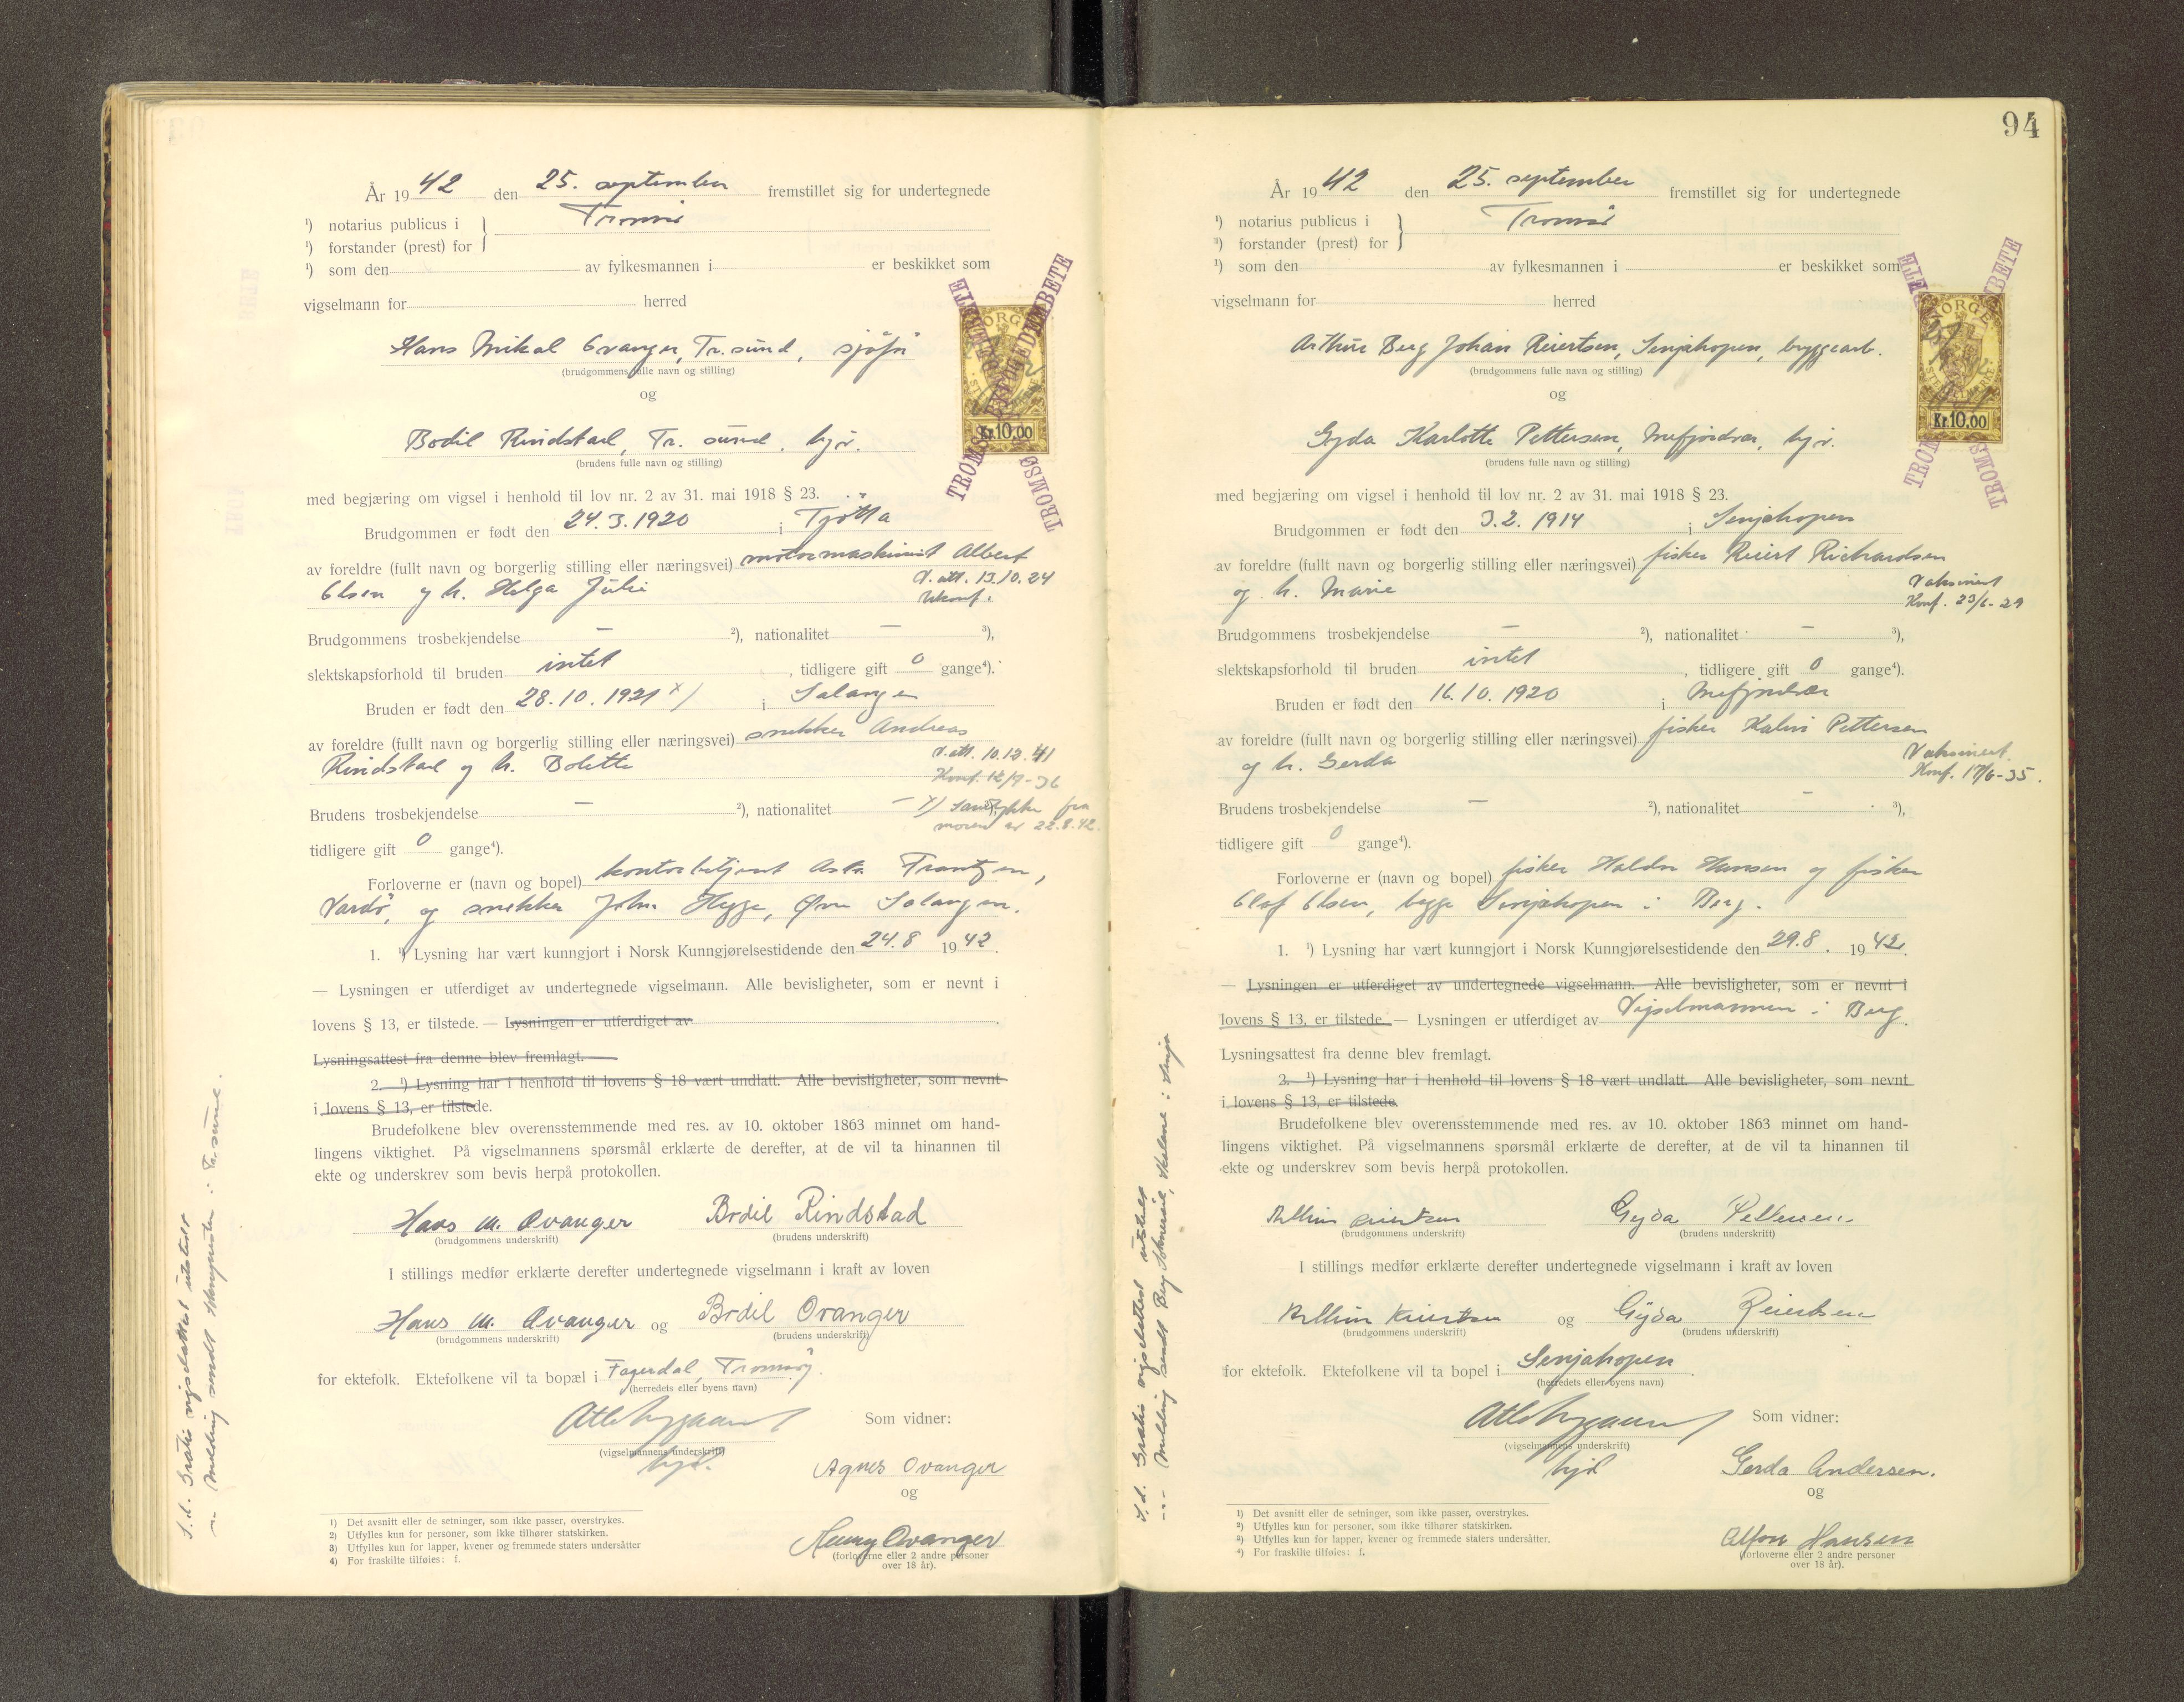 År 19 42 den 25. september fremstillet sig for undertegnede
¹) notarius publicus i } Tromsø
¹) forstander (prest) for
¹) som den av fylkesmannen i er beskikket som
vigselmann for herred
Hans Mikal Ovanger, Tr.sund, sjåfør
(brudgommens fulle navn og stilling)
og
Bodil Rindstad, Tr. sund, hjv.
(brudens fulle navn og stilling)
NORGE
STEMPELMERKE
Kr.10.00
TROMSØ BYFOGDEMBETE
TROMSØ
med begjæring om vigsel i henhold til lov nr. 2 av 31. mai 1918 § 23.
Brudgommen er født den 24.3.1920 i Tjøtta
av foreldre (fullt navn og borgerlig stilling eller næringsvei) motormaskinist Albert
Olsen og h. Helga Julie
V. att. 13.10.24
Ukonf.
Brudgommens trosbekjendelse — ²), nationalitet — ³),
slektskapsforhold til bruden intet, tidligere gift 0 gange⁴).
Bruden er født den 28.10.1921 x) i Salangen
av foreldre (fullt navn og borgerlig stilling eller næringsvei) snekker Andreas
Rindstad og h. Bolette
V. att. 10.12.41
Konf. 12/7-36
Brudens trosbekjendelse — ²), nationalitet — x) Samtykke fra
moren av 22.8.42.
tidligere gift 0 gange⁴).
Forloverne er (navn og bopel) kontorbetjent Asta Frantzen,
Vardø, og snekker John Hegge, Øvre Salangen.
1. ¹) Lysning har vært kunngjort i Norsk Kunngjørelsestidende den 24.8 19 42.
— Lysningen er utferdiget av undertegnede vigselmann. Alle bevisligheter, som er nevnt i
lovens § 13, er tilstede. — Lysningen er utferdiget av
Lysningsattest fra denne blev fremlagt.
2. ¹) Lysning har i henhold til lovens § 18 vært undlatt. Alle bevisligheter, som nevnt
i lovens § 13, er tilstede.
Brudefolkene blev overensstemmende med res. av 10. oktober 1863 minnet om hand-
lingens viktighet. På vigselmannens spørsmål erklærte de derefter, at de vil ta hinannen til
ekte og underskrev som bevis herpå protokollen.
Hans M. Ovanger Bodil Rindstad
(brudgommens underskrift) (brudens underskrift)
I stillings medfør erklærte derefter undertegnede vigselmann i kraft av loven
Hans M. Ovanger og Bodil Ovanger
(brudgommens underskrift) (brudens underskrift)
for ektefolk. Ektefolkene vil ta bopæl i Fagerdal, Tromsøy.
(herredets eller byens navn)
Som vidner:
(vigselmannens underskrift)
Agnes Ovanger
og
Henny Ovanger
(forloverne eller 2 andre personer
over 18 år).
1) Det avsnitt eller de setninger, som ikke passer, overstrykes.
2) Utfylles kun for personer, som ikke tilhører statskirken.
3) Utfylles kun for lapper, kvener og fremmede staters undersåtter
4) For fraskilte tilføies: f.
S.d. Gratis vigselattest utstedt
-"- Melding sendt i Tr.sund.
94
År 19 42 den 25. september fremstillet sig for undertegnede
¹) notarius publicus i } Tromsø
³) forstander (prest) for
¹) som den av fylkesmannen i er beskikket som
vigselmann for herred
Arthur Berg Johan Reiertsen, Senjahopen, bryggearb.
(brudgommens fulle navn og stilling)
og
Gyda Karlotte Pettersen, Mefjordvær, hjv.
(brudens fulle navn og stilling)
NORGE
STEMPELMERKE
Kr.10.00
med begjæring om vigsel i henhold til lov nr. 2 av 31. mai 1918 § 23.
Brudgommen er født den 3.2.1914 i Senjahopen
av foreldre (fullt navn og borgerlig stilling eller næringsvei) fisker Reiert Richardsen
og h. Marie
Vaksinert
Konf. 23/6-29
Brudgommens trosbekjendelse — ²), nationalitet — ³),
slektskapsforhold til bruden intet, tidligere gift 0 gange⁴).
Bruden er født den 16.10.1920 i Mefjordvær
av foreldre (fullt navn og borgerlig stilling eller næringsvei) fisker Pettersen
og h. Gerda
Vaksinert
Konf. 17/6-35.
Brudens trosbekjendelse — ²), nationalitet — ³),
tidligere gift 0 gange⁴).
Forloverne er (navn og bopel) fisker Haldor Hansen og fisker
Olaf Olsen, begge Senjahopen i Berg.
1. ¹) Lysning har vært kunngjort i Norsk Kunngjørelsestidende den 29.8. 19 42.
— Lysningen er utferdiget av undertegnede vigselmann. Alle bevisligheter, som er nevnt i
lovens § 13, er tilstede. — Lysningen er utferdiget av Vigselmannen i Berg.
Lysningsattest fra denne blev fremlagt.
2. ¹) Lysning har i henhold til lovens § 18 vært undlatt. Alle bevisligheter, som nevnt
i lovens § 13, er tilstede.
Brudefolkene blev overensstemmende med res. av 10. oktober 1863 minnet om hand-
lingens viktighet. På vigselmannens spørsmål erklærte de derefter, at de vil ta hinannen til
ekte og underskrev som bevis herpå protokollen.
Arthur Reiertsen Gyda Pettersen
(brudgommens underskrift) (brudens underskrift)
I stillings medfør erklærte derefter undertegnede vigselmann i kraft av loven
Arthur Reiertsen og Gyda Reiertsen
(brudgommens underskrift) (brudens underskrift)
for ektefolk. Ektefolkene vil ta bopel i Senjahopen.
(herredets eller byens navn)
Som vidner:
(vigselmannens underskrift)
Gerda Andersen.
og
Alfon Hansen
(forloverne eller 2 andre personer
over 18 år).
1) Det avsnitt eller de setninger, som ikke passer, overstrykes.
²) Utfylles kun for personer, som ikke tilhører statskirken.
³) Utfylles kun for lapper, kvener og fremmede staters undersåtter.
⁴) For fraskilte tilføies: f.
S.d. Gratis vigselattest utstedt
-"- Melding sendt Berg i Senja